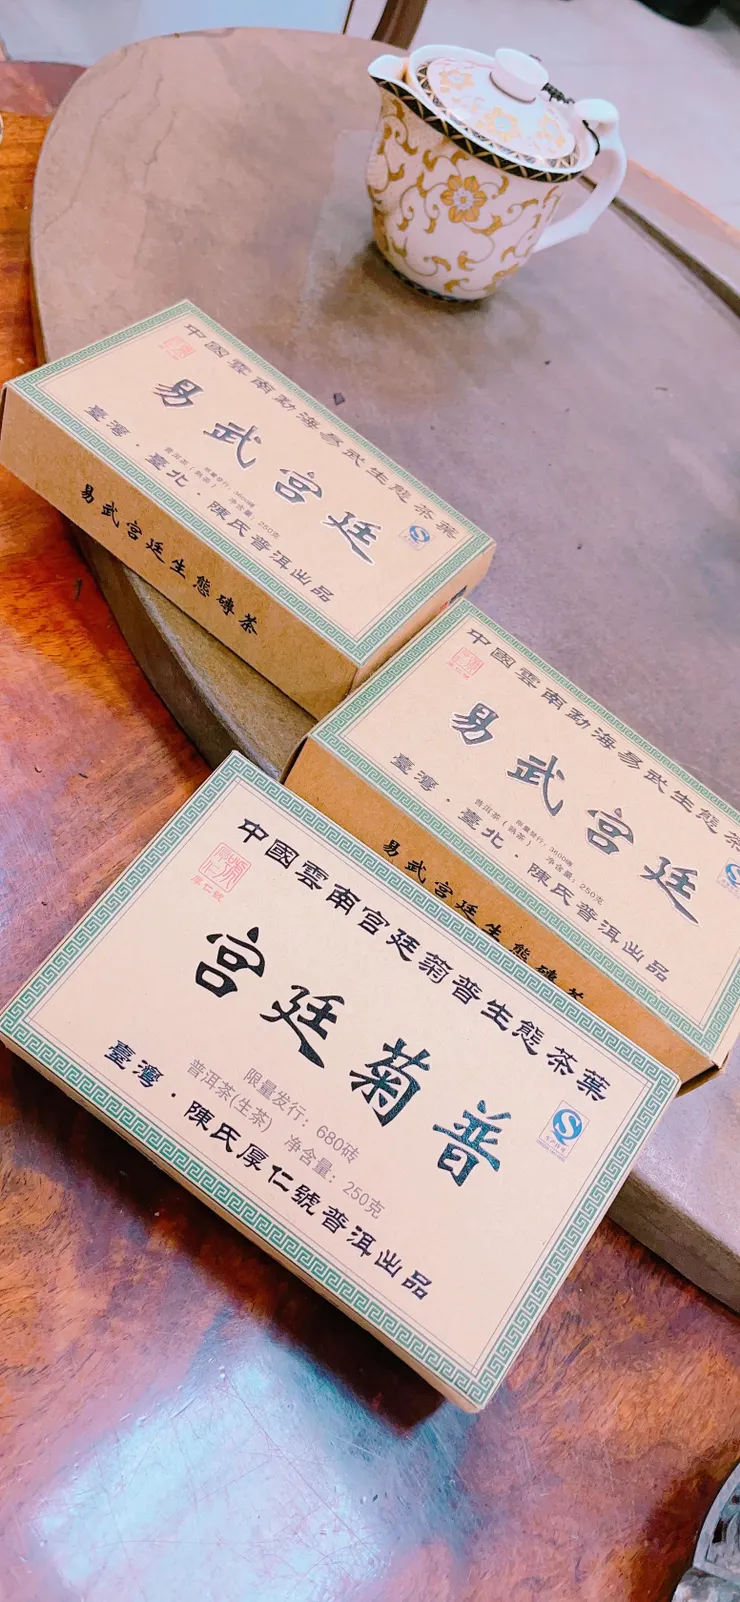 中國雲南勐海易武生態茶葉
易武宮廷
限量發行：3600磚
普洱茶（熟茶） 净含量：250克
臺灣·臺北·陳氏普洱出品
易武宮廷生態磚茶
中國雲南勐海易武生態茶
厚仁號
易武宮廷
限量發行：3600磚
普洱茶（熟茶） 净含量：250克
臺灣·臺北·陳氏普洱出品
易武宮廷生態磚茶
中國雲南宮廷菊普生態茶葉
厚仁號
宮廷菊普
限量发行：680砖
普洱茶(生茶) 净含量：250克
臺灣·陳氏厚仁號普洱出品